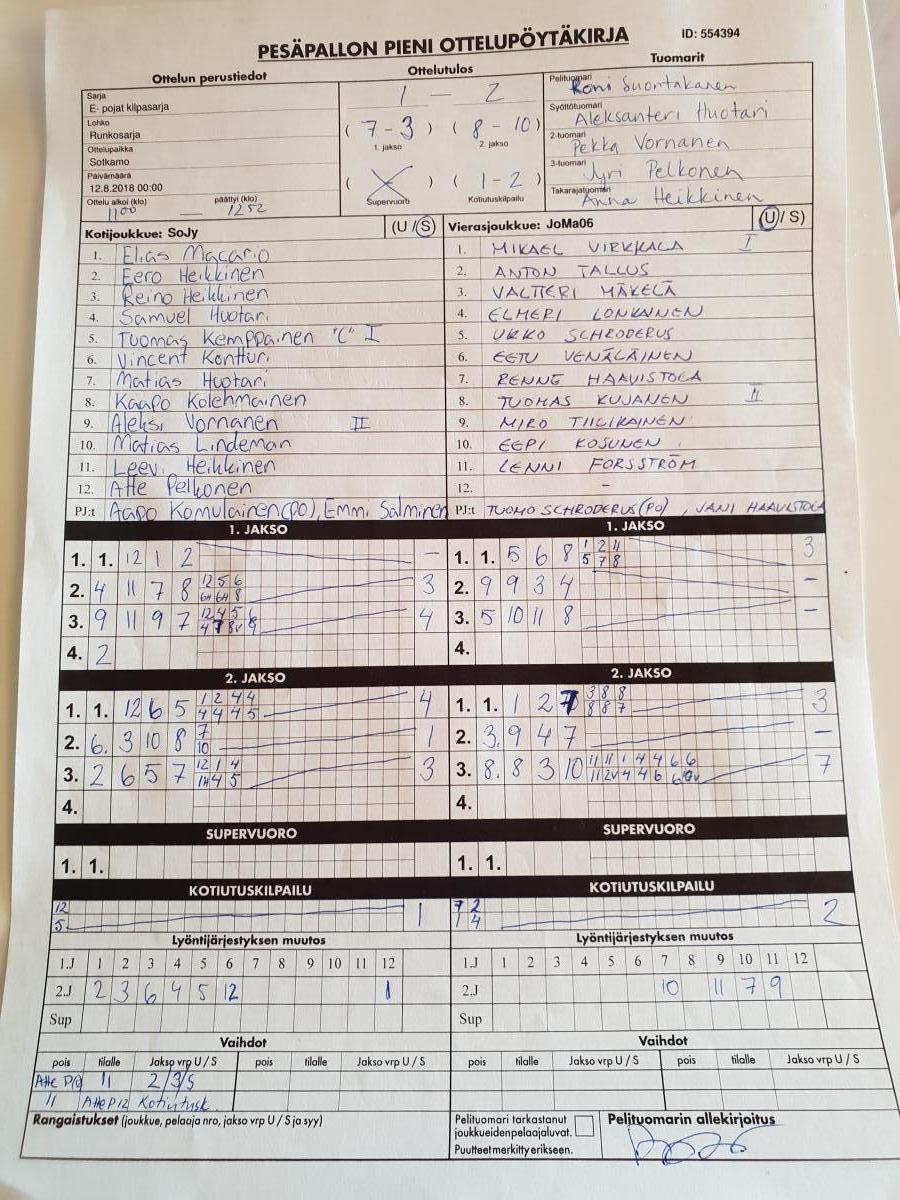 PESÄPALLON PIENI OTTELUPÖYTÄKIRJA
ID: 554394
Ottelun perustiedot
Sarja
E- pojat kilpasarja
Lohko
Runkosarja
Ottelupaikka
Sotkamo
Päivämäärä
12.8.2018 00:00
Ottelu alkoi (klo) päättyi (klo)
1100 — 1252
Ottelutulos
1 — 2
( 7 - 3 ) ( 8 - 10 )
1. jakso 2. jakso
( X ) ( 1 - 2 )
Supervuoro Kotiutuskilpailu
Tuomarit
Pelituomari
Roni Suontakanen
Syöttötuomari
Aleksanteri Huotari
2-tuomari
Pekka Vornanen
3-tuomari
Jyri Pelkonen
Takarajatuomari
Anna Heikkinen
Kotijoukkue: SoJy (U / S)
1. Elias Macario
2. Eero Heikkinen
3. Reino Heikkinen
4. Samuel Huotari
5. Tuomas Kemppainen "C" I
6. Vincent Kontturi
7. Matias Huotari
8. Kaapo Kolehmainen
9. Aleksi Vornanen II
10. Matias Lindeman
11. Leevi Heikkinen
12. Atte Pelkonen
PJ:t Aapo Komulainen(PO), Emmi Salminen
Vierasjoukkue: JoMa06 (U / S)
1. MIKAEL VIRKKALA I
2. ANTON TALLUS
3. VALTTERI MÄKELÄ
4. ELMERI LONKAINEN
5. URKO SCHRODERUS
6. EETU VENÄLÄINEN
7. RENNE HAAVISTOLA
8. TUOMAS KUJANEN II
9. MIRO TIILIKAINEN
10. EEPI KOSUNEN
11. LENNI FORSSTRÖM
12. -
PJ:t TUOMO SCHRODERUS(PO), JANI HAAVISTOLA
1. JAKSO
1. 1. 12 1 2 -
2. 4 11 7 8 12 5 6 3
3. 9 11 9 7 12 4 5 6 4
4. 2
1. JAKSO
1. 1. 5 6 8 1 2 11 3
5 7 8
2. 9 9 3 4 -
3. 5 10 11 8 -
4.
2. JAKSO
1. 1. 12 6 5 1 2 4 4 4
4 4 4 5
2. 6. 3 10 8 7 1
10
3. 2 6 5 7 12 1 4 3
4.
2. JAKSO
1. 1. 1 2 7 3 8 8 3
8 8 7
2. 3. 9 4 7 -
3. 8. 8 3 10 11 11 1 4 4 6 6 7
4.
SUPERVUORO
1. 1.
SUPERVUORO
1. 1.
KOTIUTUSKILPAILU
12 1
5
KOTIUTUSKILPAILU
7 2 2
1 4
Lyöntijärjestyksen muutos
1.J 1 2 3 4 5 6 7 8 9 10 11 12
2.J 2 3 6 4 5 12 1
Sup
Lyöntijärjestyksen muutos
1.J 1 2 3 4 5 6 7 8 9 10 11 12
2.J 10 11 7 9
Sup
Vaihdot
pois tilalle Jakso vrp U / S pois tilalle Jakso vrp U / S
11 2/3/S
11 Atte P12 Kotiutusk.
Vaihdot
pois tilalle Jakso vrp U / S pois tilalle Jakso vrp U / S
Rangaistukset (joukkue, pelaaja nro, jakso vrp U / S ja syy)
Pelituomari tarkastanut
joukkueidenpelaajaluvat.
Puutteet merkitty erikseen.
Pelituomarin allekirjoitus